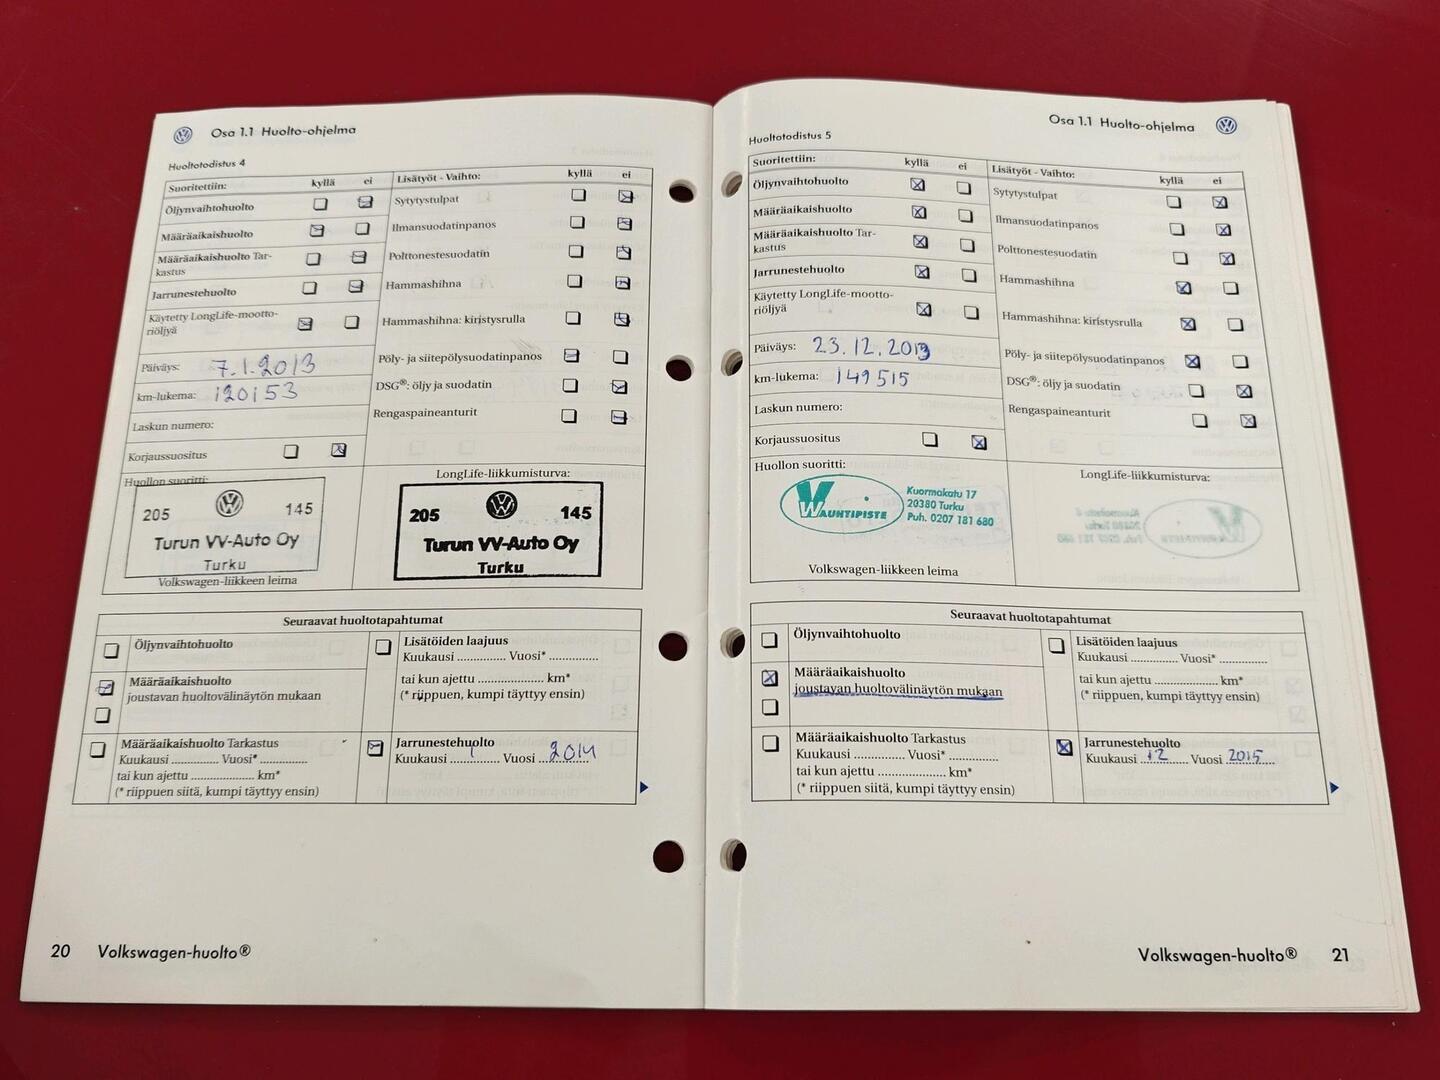 Osa 1.1 Huolto-ohjelma
Huoltotodistus 4
Suoritettiin: kyllä ei
Öljynvaihtohuolto
Määräaikaishuolto
Määräaikaishuolto Tar-
kastus
Jarrunestehuolto
Käytetty LongLife-mootto-
riöljyä
Päiväys: 7.1.2013
km-lukema: 120153
Laskun numero:
Korjaussuositus
Lisätyöt - Vaihto: kyllä ei
Sytytystulpat
Ilmansuodatinpanos
Polttonestesuodatin
Hammashihna
Hammashihna: kiristysrulla
Pöly- ja siitepölysuodatinpanos
DSG®: öljy ja suodatin
Rengaspaineanturit
Huollon suoritti:
205 145
Turun VV-Auto Oy
Turku
Volkswagen-liikkeen leima
LongLife-liikkumisturva:
205 145
Turun VV-Auto Oy
Turku
Seuraavat huoltotapahtumat
Öljynvaihtohuolto
Määräaikaishuolto
joustavan huoltovälinäytön mukaan
Määräaikaishuolto Tarkastus
Kuukausi .............. Vuosi* ...............
tai kun ajettu ................... km*
(* riippuen siitä, kumpi täyttyy ensin)
Lisätöiden laajuus
Kuukausi ............... Vuosi* ...............
tai kun ajettu ................... km*
(* riippuen, kumpi täyttyy ensin)
Jarrunestehuolto
Kuukausi 1 Vuosi 2014
20 Volkswagen-huolto®
Osa 1.1 Huolto-ohjelma
Huoltotodistus 5
Suoritettiin: kyllä ei
Öljynvaihtohuolto
Määräaikaishuolto
Määräaikaishuolto Tar-
kastus
Jarrunestehuolto
Käytetty LongLife-mootto-
riöljyä
Päiväys: 23.12.2013
km-lukema: 149515
Laskun numero:
Korjaussuositus
Lisätyöt - Vaihto: kyllä ei
Sytytystulpat
Ilmansuodatinpanos
Polttonestesuodatin
Hammashihna
Hammashihna: kiristysrulla
Pöly- ja siitepölysuodatinpanos
DSG®: öljy ja suodatin
Rengaspaineanturit
Huollon suoritti:
VAUNTIPISTE
Kuormakatu 17
20380 Turku
Puh. 0207 181 680
Volkswagen-liikkeen leima
LongLife-liikkumisturva:
Seuraavat huoltotapahtumat
Öljynvaihtohuolto
Määräaikaishuolto
joustavan huoltovälinäytön mukaan
Määräaikaishuolto Tarkastus
Kuukausi .............. Vuosi* ...............
tai kun ajettu .................... km*
(* riippuen siitä, kumpi täyttyy ensin)
Lisätöiden laajuus
Kuukausi .............. Vuosi* ..............
tai kun ajettu ................... km*
(* riippuen, kumpi täyttyy ensin)
Jarrunestehuolto
Kuukausi 12 Vuosi 2015
Volkswagen-huolto® 21